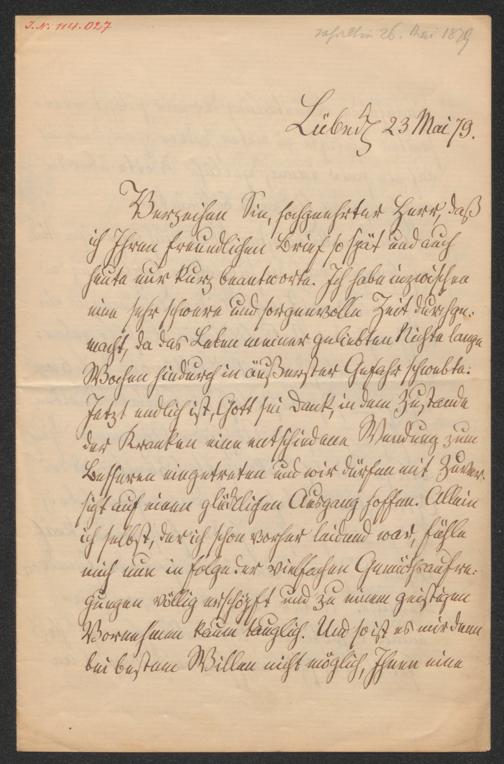 J.N. 114.027
26. Mai 1879
Lübeck 23 Mai 79.
Verzeihen Sie, hochgeehrter Herr, daß
ich Ihren freundlichen Brief so spät und auch
heute nur kurz beantworte. Ich habe inzwischen
eine sehr schwere und sorgenvolle Zeit durchge-
macht, da das Leben meiner geliebten Nichte lange
Wochen hindurch in äußerster Gefahr schwebte.
Jetzt endlich ist, Gott sei Dank, in dem Zustande
der Kranken eine entschiedene Wendung zum
Besseren eingetreten und wir dürfen mit Zuver-
sicht auf einen glücklichen Ausgang hoffen. Allein
ich selbst, der ich schon vorher leidend war, fühle
mich nun in Folge der vielfachen Gemüthsaufre-
gungen völlig erschöpft und zu einem geistigen
Vornehmen kaum tauglich. Und so ist es mir denn
bei bestem Willen nicht möglich, Ihnen eine